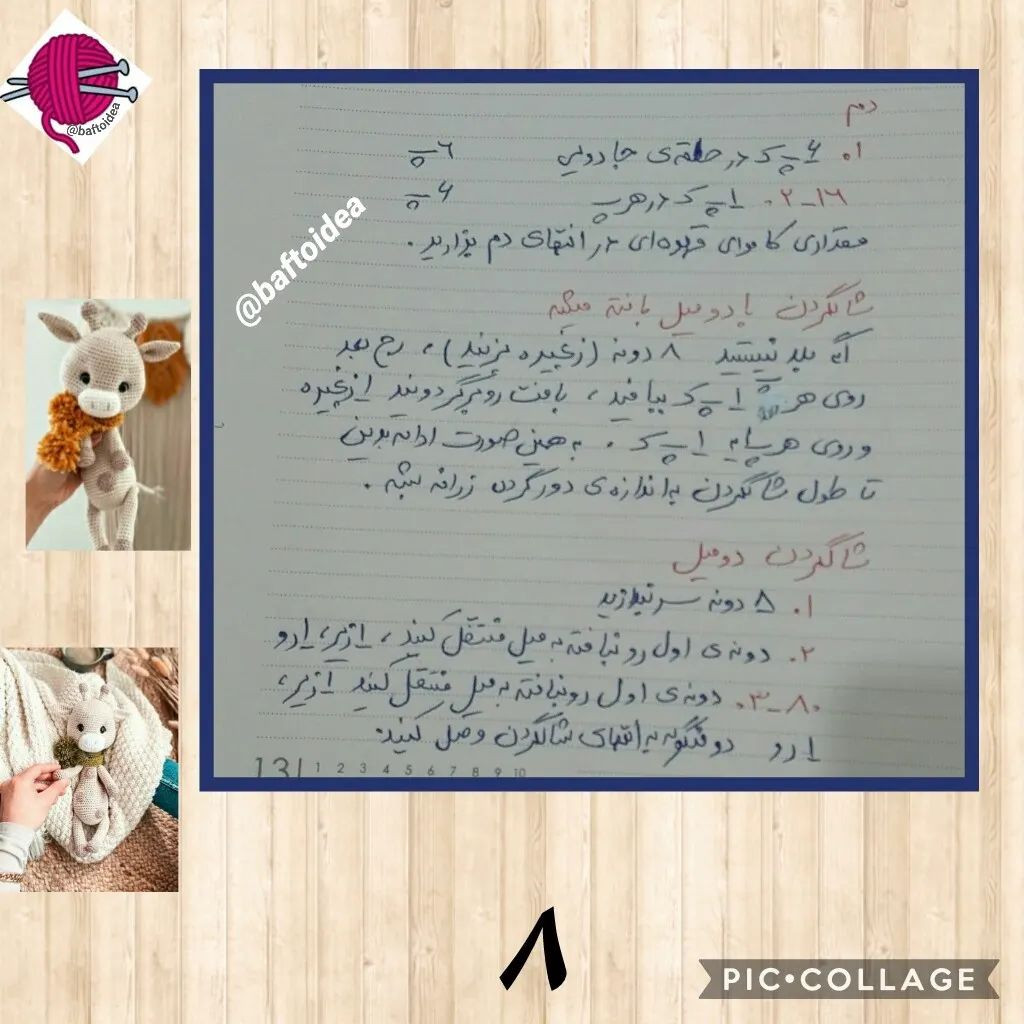 @baftoidea
دم
۰۱ ۶پ ک در حلقه‌ی جادویی ۶پ
۲-۱۶۰ ۱پ ک در هر پ ۶پ
مقداری کاموای قهوه‌ای در انتهای دم بزارید.
@baftoidea
شالگردن با دو میل بافته میشه
اگه بلد نیستید ۸ دونه (زنجیره بزنید)، رج بعد
روی هر ۱پ ک ببافید، بافت رو برگردونید ۱زنجیره
و روی هر پایه ۱پ ک. به همین صورت ادامه بدین
تا طول شالگردن به اندازه‌ی دور گردن زرافه بشه.
شالگردن دو میل
۱. ۸ دونه سر بندازید
۲. دونه‌ی اول رو نبافته به میل منتقل کنید، ۱زیر، ۱رو
۳-۸۰. دونه‌ی اول رو نبافته به میل منتقل کنید ۱زیر،
۱رو دو منگوله به انتهای شالگردن وصل کنید.
131 1 2 3 4 5 6 7 8 9 10
۸
PIC•COLLAGE